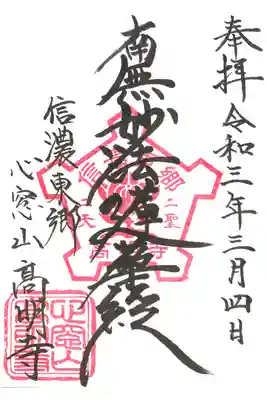 奉拝 令和三年三月四日
南無妙法蓮華経
信濃東郷
心窓山 高明寺